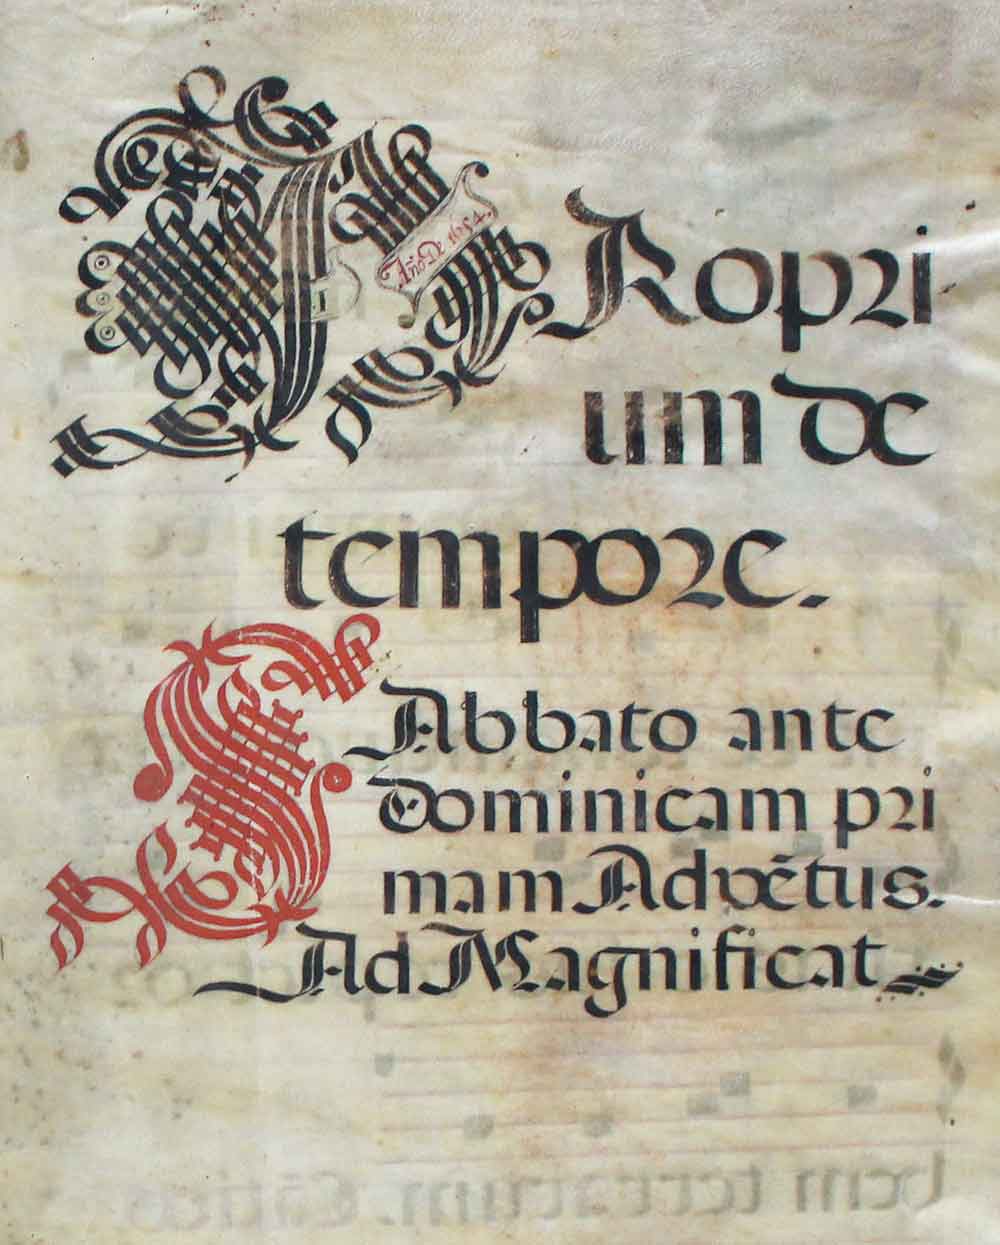 PRopri
um de
tempore.
SAbbato ante
Dominicam pri
mam Advẽtus.
Ad Magnificat
Año De 1654.